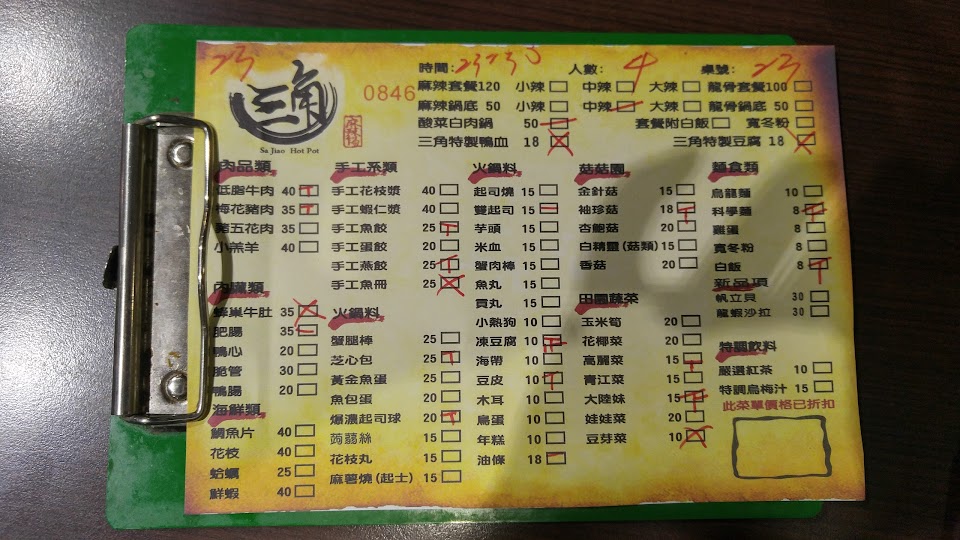 23
三角
麻辣鍋
Sa Jiao Hot Pot
0846
時間: 23:30 人數: 4 桌號: 23
麻辣套餐120 小辣 中辣 大辣 龍骨套餐100
麻辣鍋底 50 小辣 中辣 大辣 龍骨鍋底 50
酸菜白肉鍋 50 套餐附白飯 寬冬粉
三角特製鴨血 18 三角特製豆腐 18
肉品類
低脂牛肉 40
梅花豬肉 35
豬五花肉 35
小羔羊 40
內臟類
蜂巢牛肚 35
肥腸 35
鴨心 20
脆管 30
鴨腸 20
海鮮類
鯛魚片 40
花枝 40
蛤蠣 25
鮮蝦 40
手工系類
手工花枝漿 40
手工蝦仁漿 40
手工魚餃 25
手工蛋餃 20
手工燕餃 25
手工魚冊 25
火鍋料
蟹腿棒 25
芝心包 25
黃金魚蛋 25
魚包蛋 20
爆濃起司球 20
蒟蒻絲 15
花枝丸 15
麻薯燒(起士) 15
火鍋料
起司燒 15
雙起司 15
芋頭 15
米血 15
蟹肉棒 15
魚丸 15
貢丸 15
小熱狗 10
凍豆腐 10
海帶 10
豆皮 10
木耳 10
鳥蛋 10
年糕 10
油條 18
菇菇園
金針菇 15
袖珍菇 18
杏鮑菇 20
白精靈(菇類) 15
香菇 20
田園蔬菜
玉米筍 20
花椰菜 20
高麗菜 15
青江菜 15
大陸妹 15
娃娃菜 20
豆芽菜 10
麵食類
烏龍麵 10
科學麵 8
雞蛋 8
寬冬粉 8
白飯 8
新品項
帆立貝 30
龍蝦沙拉 30
特調飲料
嚴選紅茶 10
特調烏梅汁 15
此菜單價格已折扣